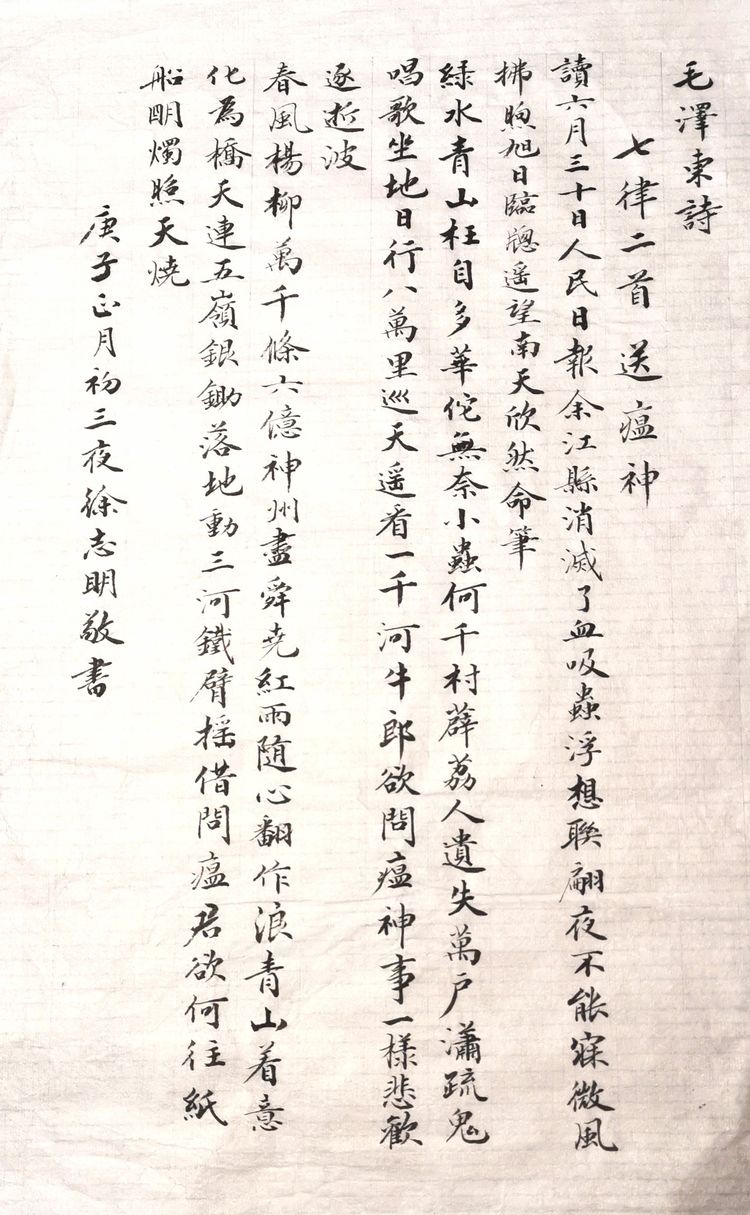 毛澤東詩
七律二首 送瘟神
讀六月三十日人民日報余江縣消滅了血吸蟲浮想聯翩夜不能寐微風
拂煦旭日臨牕遥望南天欣然命筆
緑水青山枉自多華佗無奈小蟲何千村薜荔人遺失萬户瀟疏鬼
唱歌坐地日行八萬里巡天遥看一千河牛郎欲問瘟神事一樣悲歡
逐逝波
春風楊柳萬千條六億神州盡舜尭紅雨随心翻作浪青山着意
化為橋天連五嶺銀鋤落地動三河鐵臂摇借問瘟君欲何往紙
船明燭照天燒
庚子正月初三夜徐志明敬書